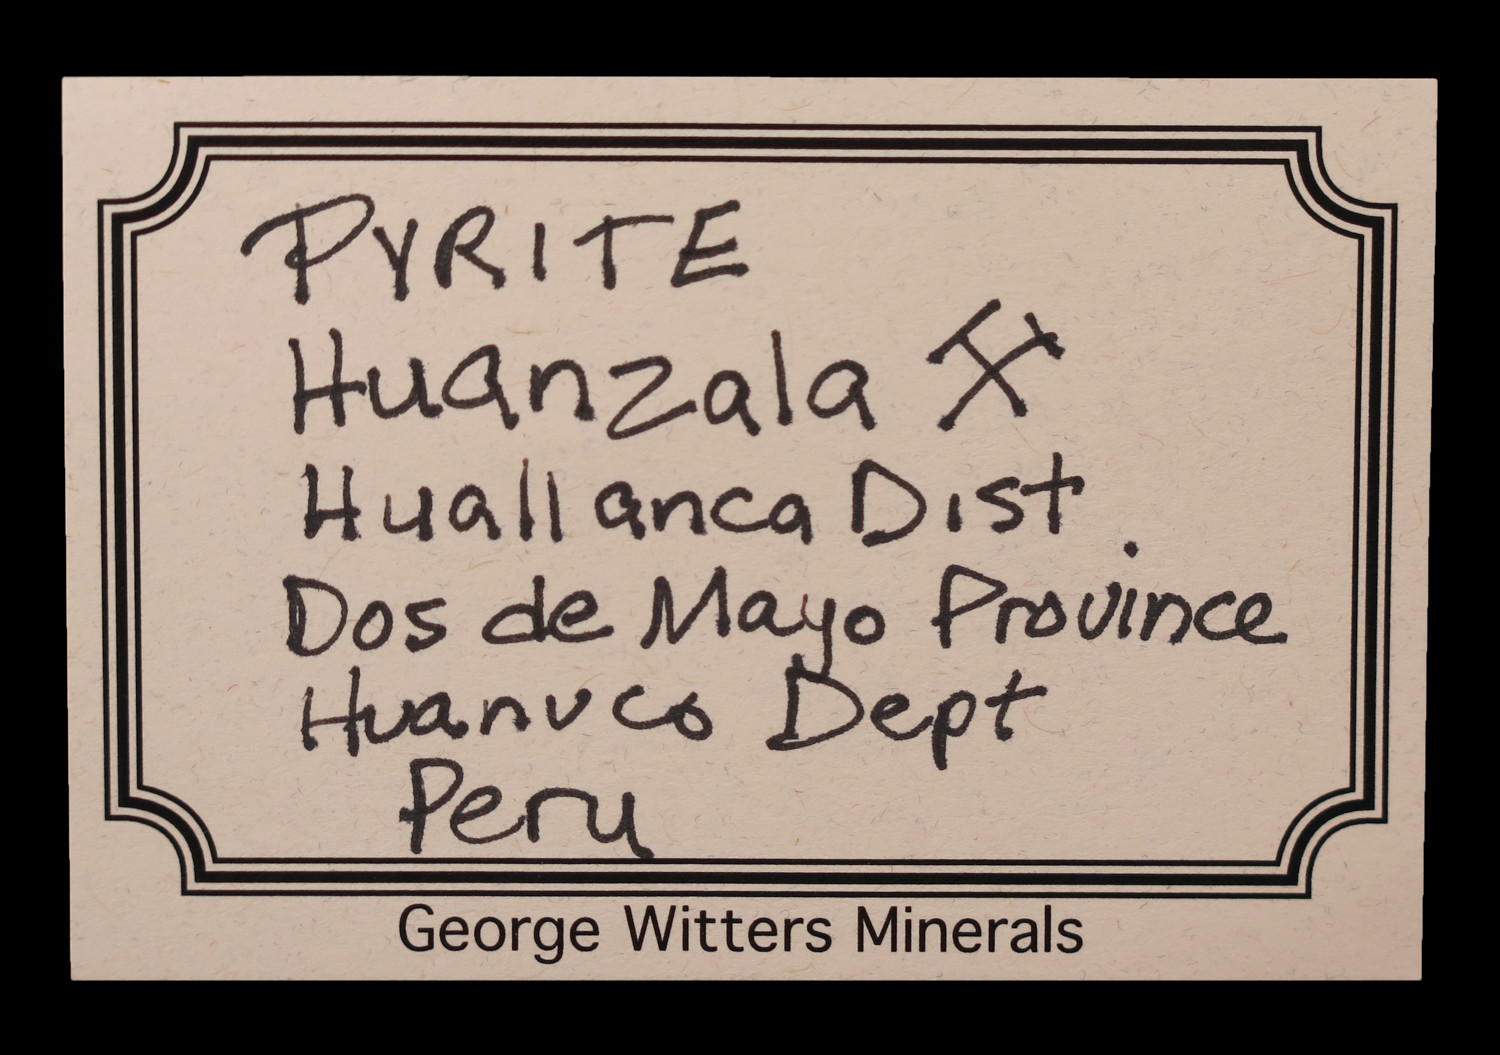 PYRITE
Huanzala ⚒
Huallanca Dist.
Dos de Mayo Province
Huanuco Dept
Peru
George Witters Minerals